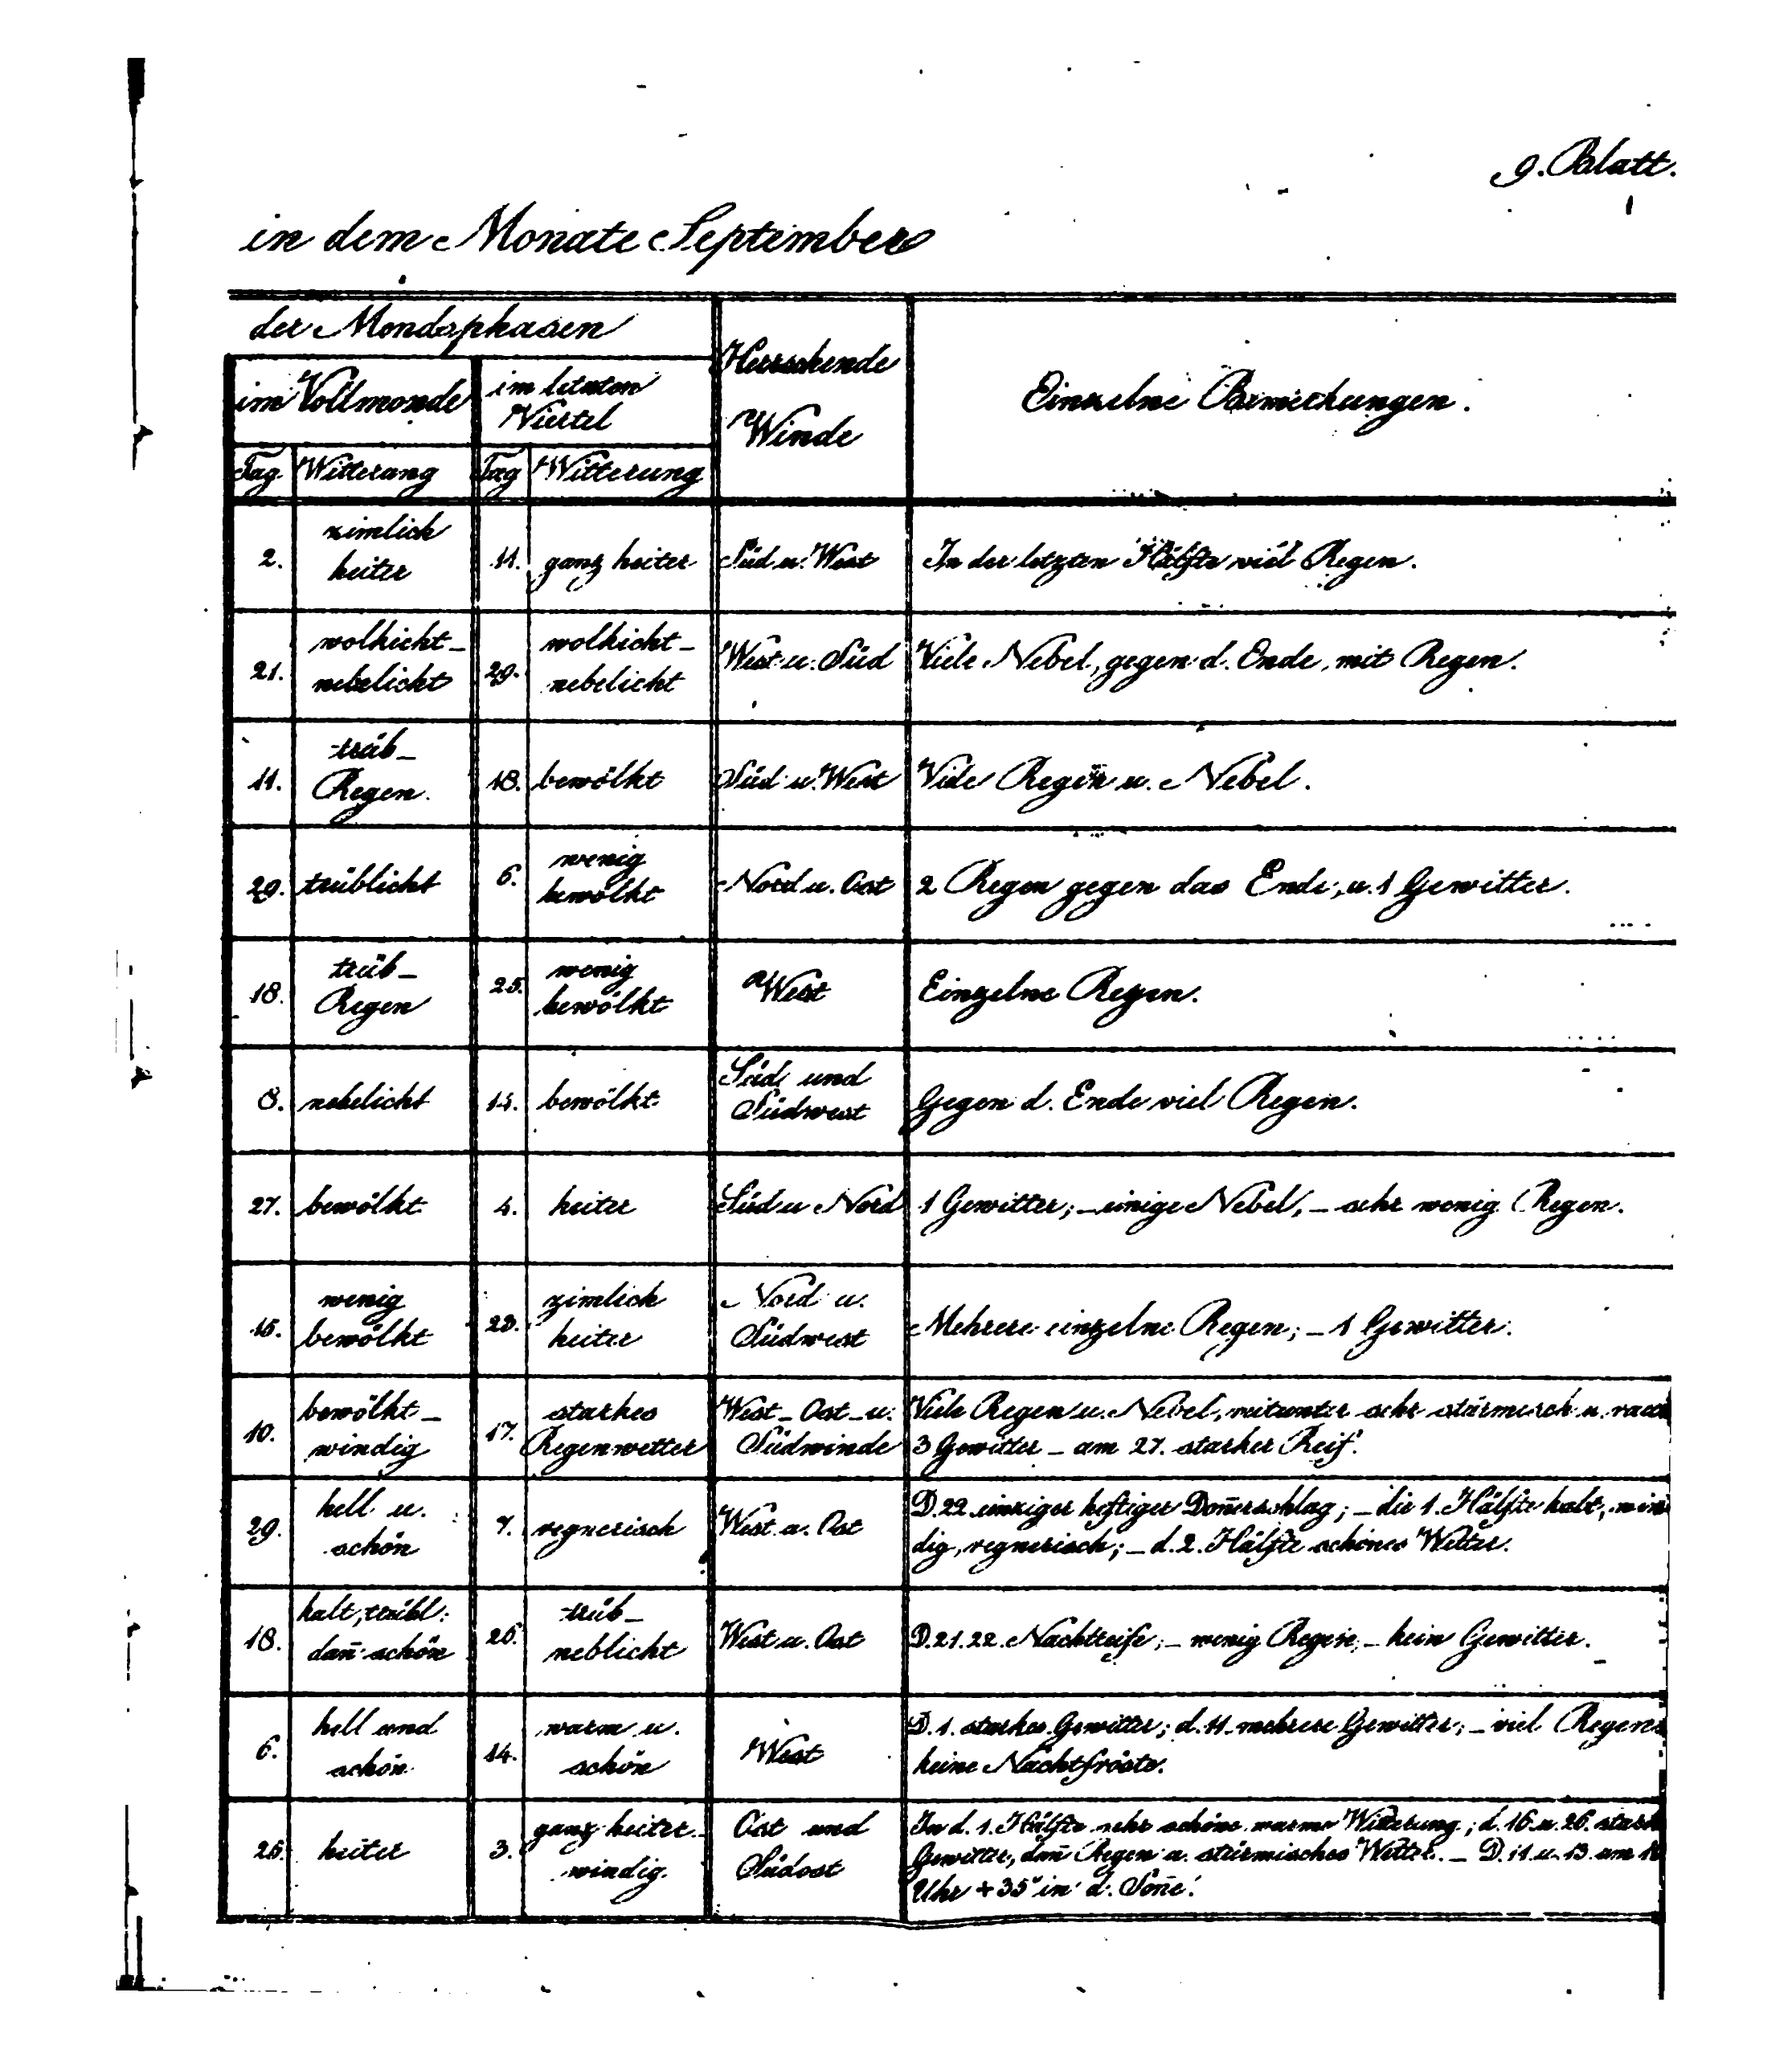 9. Blatt.
in dem Monate September
der Mondsphasen
Herrschende
Winde
Einzelne Bemerkungen.
im Vollmonde
im letzten
Viertel
Tag Witterung Tag Witterung
zimlich
heiter
2. 11. ganz heiter Süd u. West In der letzten Hälfte viel Regen.
wolkicht_
nebelicht
21. 29. wolkicht_
nebelicht
West u. Süd Viele Nebel, gegen d. Ende, mit Regen.
trüb_
Regen.
11. 18. bewölkt Süd u. West Viele Regen u. Nebel.
29. trüblicht 6. wenig
bewölkt
Nord u. Ost 2 Regen gegen das Ende, u. 1 Gewitter.
18. trüb_
Regen
25. wenig
bewölkt
West Einzelne Regen.
8. nebelicht 14. bewölkt Süd und
Südwest
Gegen d. Ende viel Regen.
27. bewölkt 4. heiter Süd u Nord 1 Gewitter; _ einige Nebel, _ sehr wenig Regen.
15. wenig
bewölkt
23. zimlich
heiter
Nord u.
Südwest
Mehrere einzelne Regen; _ 1 Gewitter.
10. bewölkt_
windig
17. starkes
Regenwetter
West_Ost_u.
Südwinde
Viele Regen u. Nebel, mitunter sehr stürmisch u.
3 Gewitter _ am 27. starker Reif.
29. hell u.
schön
7. regnerisch West u. Ost D. 22. einziger heftiger Doñerschlag; _ die 1. Hälfte kalt, win
dig, regnerisch; _ d. 2. Hälfte schönes Wetter.
18. kalt, trübl:
dañ schön
26. trüb_
neblicht
West u. Ost D. 21. 22. Nachtreife; _ wenig Regen; _ kein Gewitter.
6. hell und
schön
14. warm u.
schön
West D. 1. starkes Gewitter; d. 11. mehrere Gewitter; _ viel Regen
keine Nachtfröste.
25. heiter 3. ganz heiter_
windig.
Ost und
Südost
In d. 1. Hälfte sehr schöne warme Witterung; d. 16. u. 26. stark
Gewitter, dañ Regen u. stürmisches Wetter. _ D. 11. u. 13. um 12
Uhr + 35° in d. Soñe.